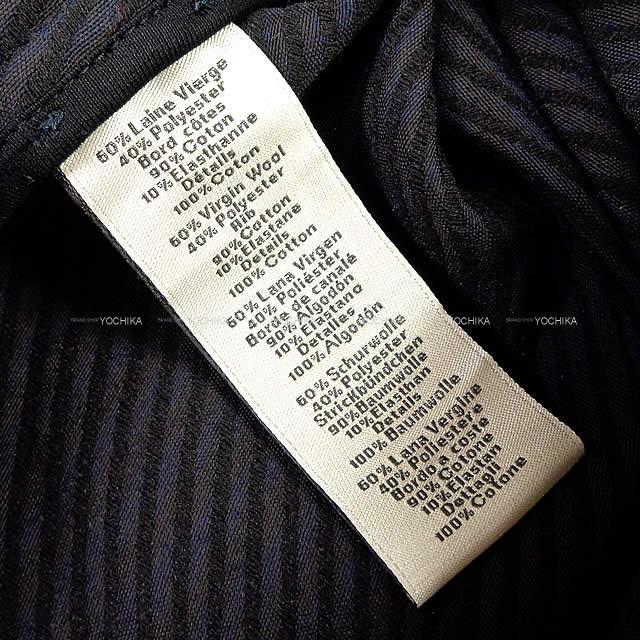 60% Laine Vierge
40% Polyester
Bord côtes
90% Coton
10% Elasthanne
Détails
100% Coton
60% Virgin Wool
40% Polyester
Rib
90% Cotton
10% Elastane
Details
100% Cotton
60% Lana Virgen
40% Poliéster
Borde de canalé
90% Algodón
10% Elastano
Detalles
100% Algodón
60% Schurwolle
40% Polyester
Strickbündchen
90% Baumwolle
10% Elasthan
Details
100% Baumwolle
60% Lana Vergine
40% Poliestere
Bordo a coste
90% Cotone
10% Elastan
Dettagli
100% Cotone
BRAND SHOP YOCHIKA
BRAND SHOP YOCHIKA
BRAND SHOP YOCHIKA